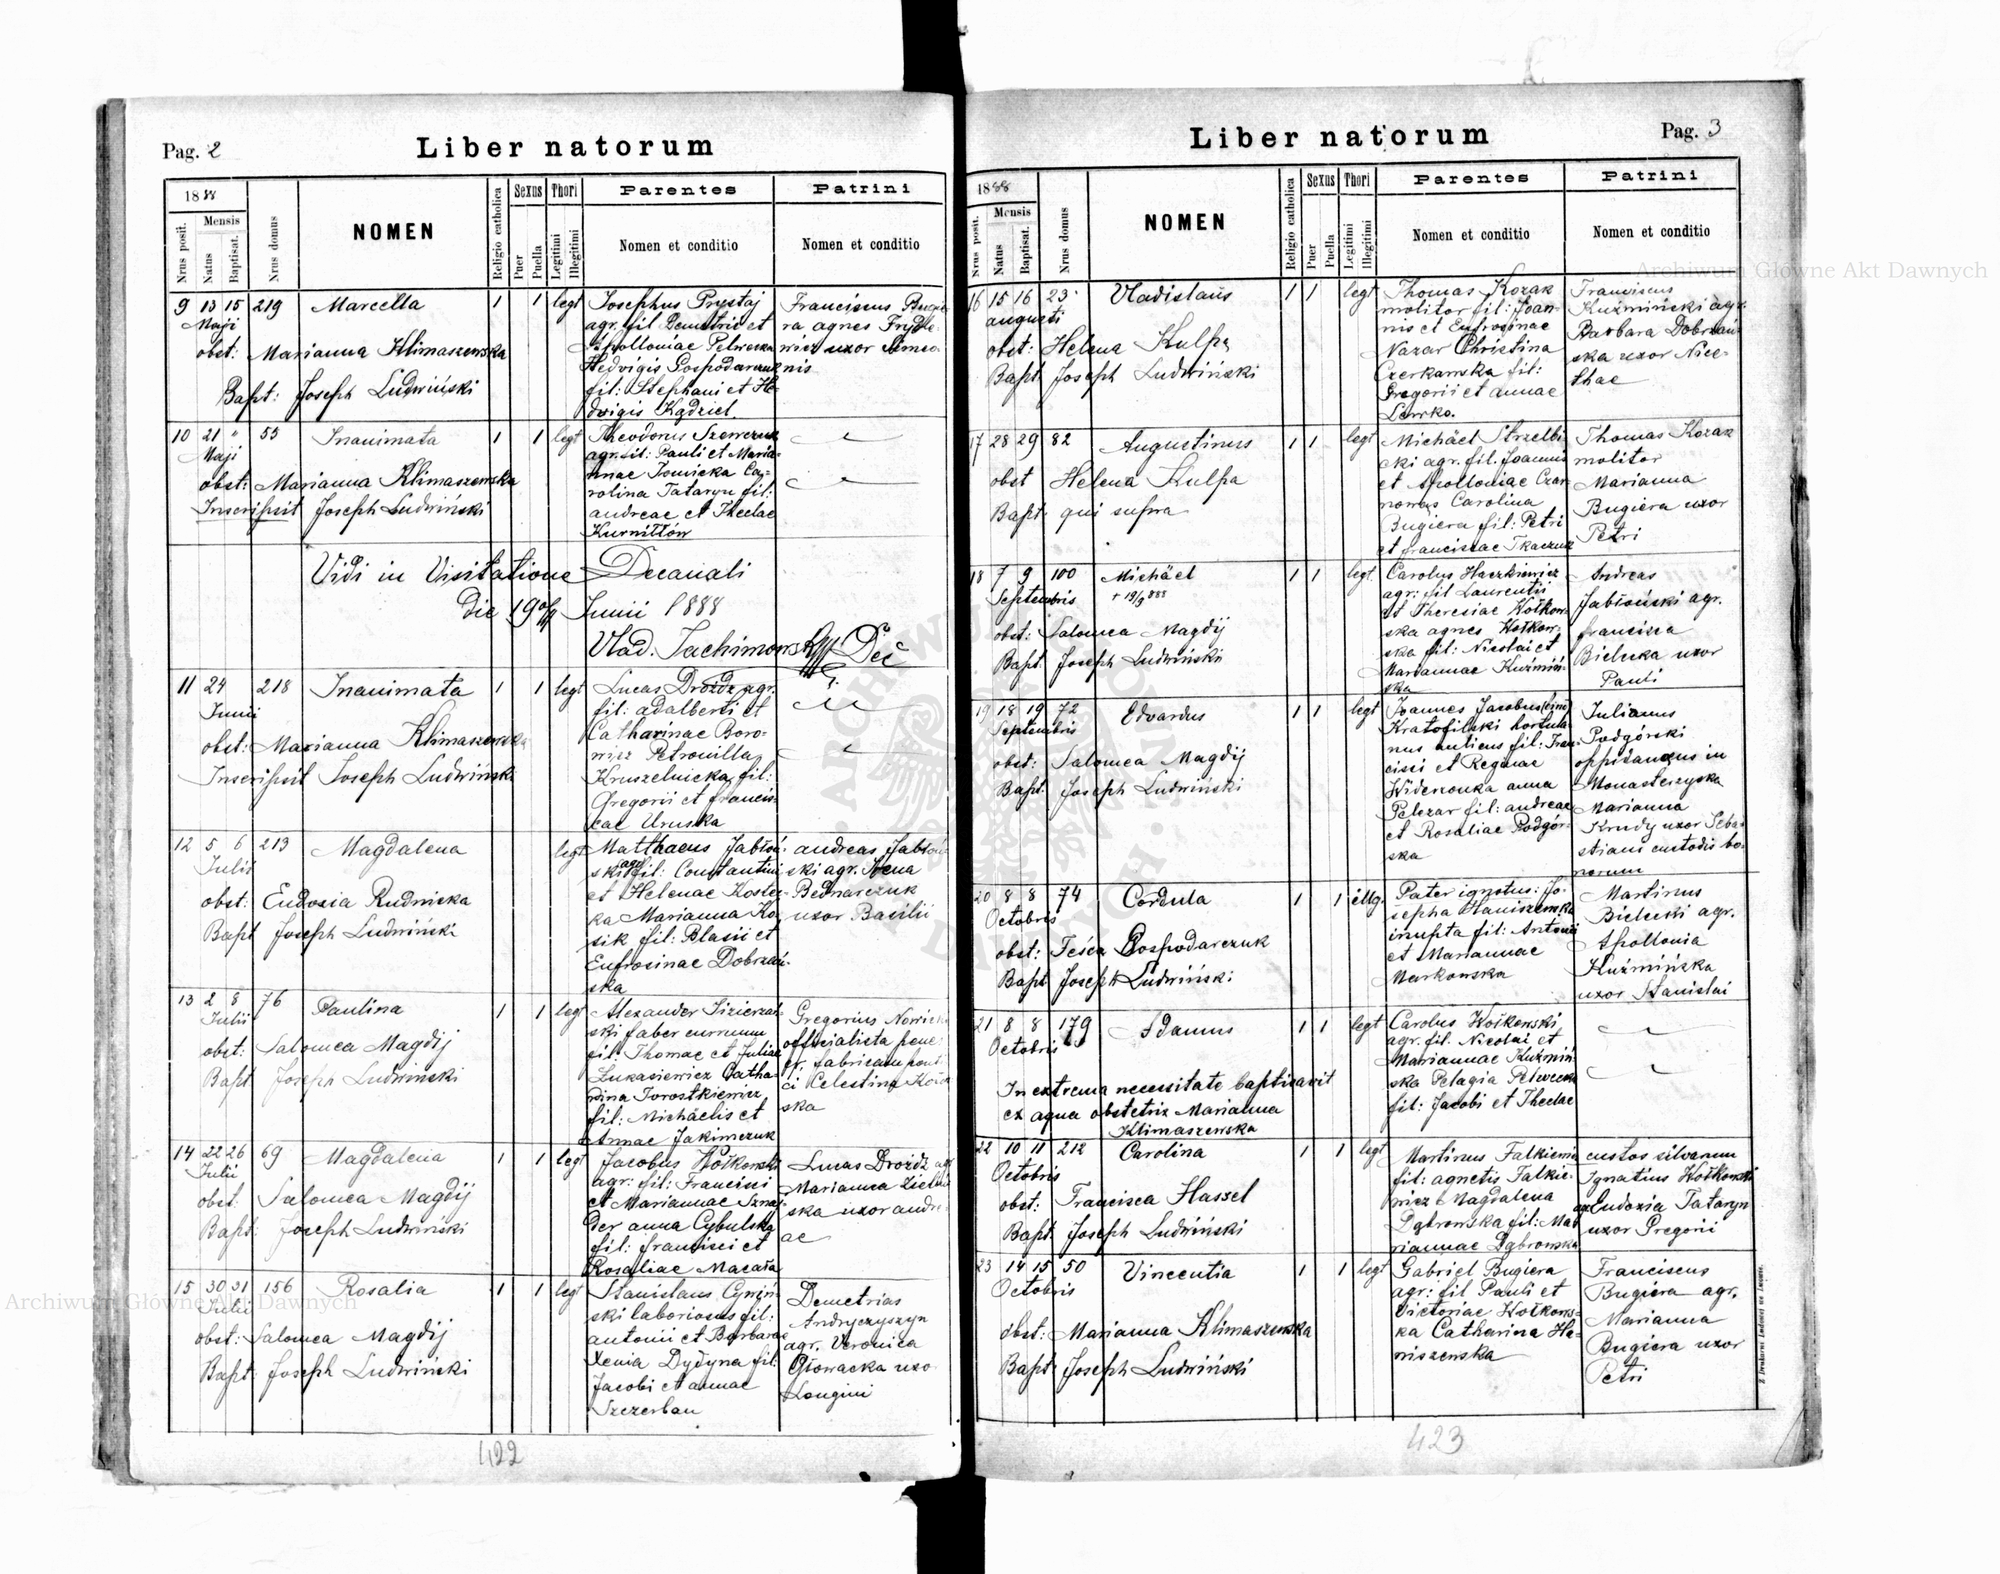 Pag. 2
Liber natorum
1888
Mensis
Nrus posit.
Natus
Baptisat.
Nrus domus
NOMEN
Religio catholica
Sexus
Puer
Puella
Thori
Legitimi
Illegitimi
Parentes
Nomen et conditio
Patrini
Nomen et conditio
9 13 15 219 Marcella 1 1 legt
Maji
obst: Marianna Klimaszewska
Bapt: Joseph Ludwiński
Josephus Prystaj
agr. fil Demetrii et
Apolloniae Petwecka
Hedvigis Gospodarczuk
fil: Stephani et He-
dvigis Kądziel
Franciscus Bugie-
ra agnes Frydle-
wicz uxor Simeo
nis
10 21 " 53 Inanimata 1 1 legt
Maji
obst: Marianna Klimaszewska
Inscripsit Joseph Ludwiński
Theodorus Szewczuk
agr. fil: Pauli et Maria-
nnae Ca-
rolina Tataryn fil:
andreae et Theclae
Vidi in Visitatione Decanali
Die 19 Junii 1888
Vlad. Jachimowski Dec
11 24 218 Inanimata 1 1 legt
Junii
obst: Marianna Klimaszewska
Inscripsit Joseph Ludwinsk
Lucas Drozdz agr.
fil: adalberti et
Catharinae Boro-
wicz Petronilla
Kruszelnicka fil:
Gregorii et francis-
cae Uruska
12 5 6 213 Magdalena legt
Julii
obst: Eudoxia Rudnicka
Bapt Joseph Ludwiński
Matthaeus Jabłoń-
ski agr fil: Constantini
et Helenae Kostec-
ka Marianna Ko
sik fil: Blasii et
Eufrosinae Dobrzań-
ska
andreas Jabłoń
ski agr. Xena
Bednarczuk
uxor Basilii
13 2 8 76 Paulina 1 1 legt
Julii
obst: Salomea Magdij
Bapt Joseph Ludwinski
Alexander
ski faber curruum
fil: Thomae et Juliae
Łukasiewicz Catha-
rina Torostkiewicz
fil: Michäelis et
Annae Jakimczuk
Gregorius
officialista penes
fr. fabricam
Celestina
ska
14 22 26 69 Magdalena 1 1 legt
Julii
obst: Salomea Magdij
Bapt: Joseph Ludwiński
Jacobus Wołkowski
agr. fil: Francisci
et Mariannae Sznaj
der anna Cybulska
fil: francisci et
Rosaliae Macała
Lucas Drozdz agr
Marianna
ska uxor andre
ae
15 30 31 156 Rosalia 1 1 legt
Julii
obst: Salomea Magdij
Bapt: Joseph Ludwiński
Stanislaus
ski laboriosus fil:
antonii et Barbarae
Xenia Dydyna fil:
Jacobi et annae
Szczerban
Demetrius
Andryczyszyn
agr. Veronica
Głowacka uxo
Longini
422
Pag. 3
Liber natorum
1888
Mensis
Nrus posit.
Natus
Baptisat.
Nrus domus
NOMEN
Religio catholica
Sexus
Puer
Puella
Thori
Legitimi
Illegitimi
Parentes
Nomen et conditio
Patrini
Nomen et conditio
16 15 16 23 Vladislaus 1 1 legt
augusti
obst: Helena Kulpa
Bapt. Joseph Ludwiński
Thomas Kozak
molitor fil: Joan-
nis et Eufrosinae
Nazar Christina
Czerkawska fil:
Gregorii et annae
Lewko.
Franciscus
Kuźmiński agr.
Barbara Dobrzań-
ska uxor Nice-
thae
17 28 29 82 Augustinus 1 1 legt
obst Helena Kulpa
Bapt. qui supra
Michäel Strzelbi
cki agr. fil. Joannis
et Apolloniae Czar-
nowąs Carolina
Bugiera fil: Petri
et franciscae Tkaczuk
Thomas Kozak
molitor
Marianna
Bugiera uxor
Petri
18 7 9 100 Michäel 1 1 legt.
Septembris + 19/9 888
obst: Salomea Magdij
Bapt. Joseph Ludwiński
Carolus Haczkiewicz
agr: fil Laurentii
et Theresiae Wołkow-
ska agnes Wołkow-
ska fil: Nicolai et
Mariannae Kuźmiń-
ska
Andreas
Jabłoński agr.
francisca
Bielecka uxor
Pauli
19 18 19 72 Edvardus 1 1 legt
Septembris
obst: Salomea Magdij
Bapt. Joseph Ludwiński
Joannes Jacobus (bino)
Kratofilski hortula
nus aulicus fil: Fran-
cisci et Reginae
anna
Pelczar fil: andreae
et Rosaliae Podgór-
ska
Julianus
Podgórski
oppidaneus in
Monasterzyska
Marianna
Krudy uxor Seba-
stiani custodis bo-
norum
20 8 8 74 Cordula 1 1 illeg.
Octobris
obst: Tecea Gospodarczuk
Bapt. Joseph Ludwiński
Pater ignotus: Jo-
sepha Haniszewska
inupta fil: Antonii
et Mariannae
Markowska
Martinus
Bielecki agr.
Apollonia
Kuźmińska
uxor Stanislai
21 8 8 179 Adamus 1 1 legt
Octobris
In extrema necessitate baptisavit
ex aqua obstetrix Marianna
Klimaszewska
Carolus Wołkowski
agr. fil. Nicolai et
Mariannae Kuźmiń-
ska Pelagia Petwecka
fil: Jacobi et Theclae
22 10 11 212 Carolina 1 1 legt
Octobris
obst: Francisca Hassel
Bapt. Joseph Ludwiński
Martinus Falkiewicz
fil: agnetis Falkie-
wicz Magdalena
Dąbrowska fil: Ma
riannae Dąbrowska
custos silvarum
Ignatius Wołkowski
agr Eudoxia Tataryn
uxor Gregorii
23 14 15 50 Vincentia 1 1 legt
Octobris
obst: Marianna Klimaszewska
Bapt. Joseph Ludwiński
Gabriel Bugiera
agr: fil Pauli et
Victoriae Wołkows-
ka Catharina Ha-
niszewska
Franciscus
Bugiera agr.
Marianna
Bugiera uxor
Petri
Z Drukarni Ludowej we Lwowie.
423
Archiwum Główne Akt Dawnych
Archiwum Główne Akt Dawnych